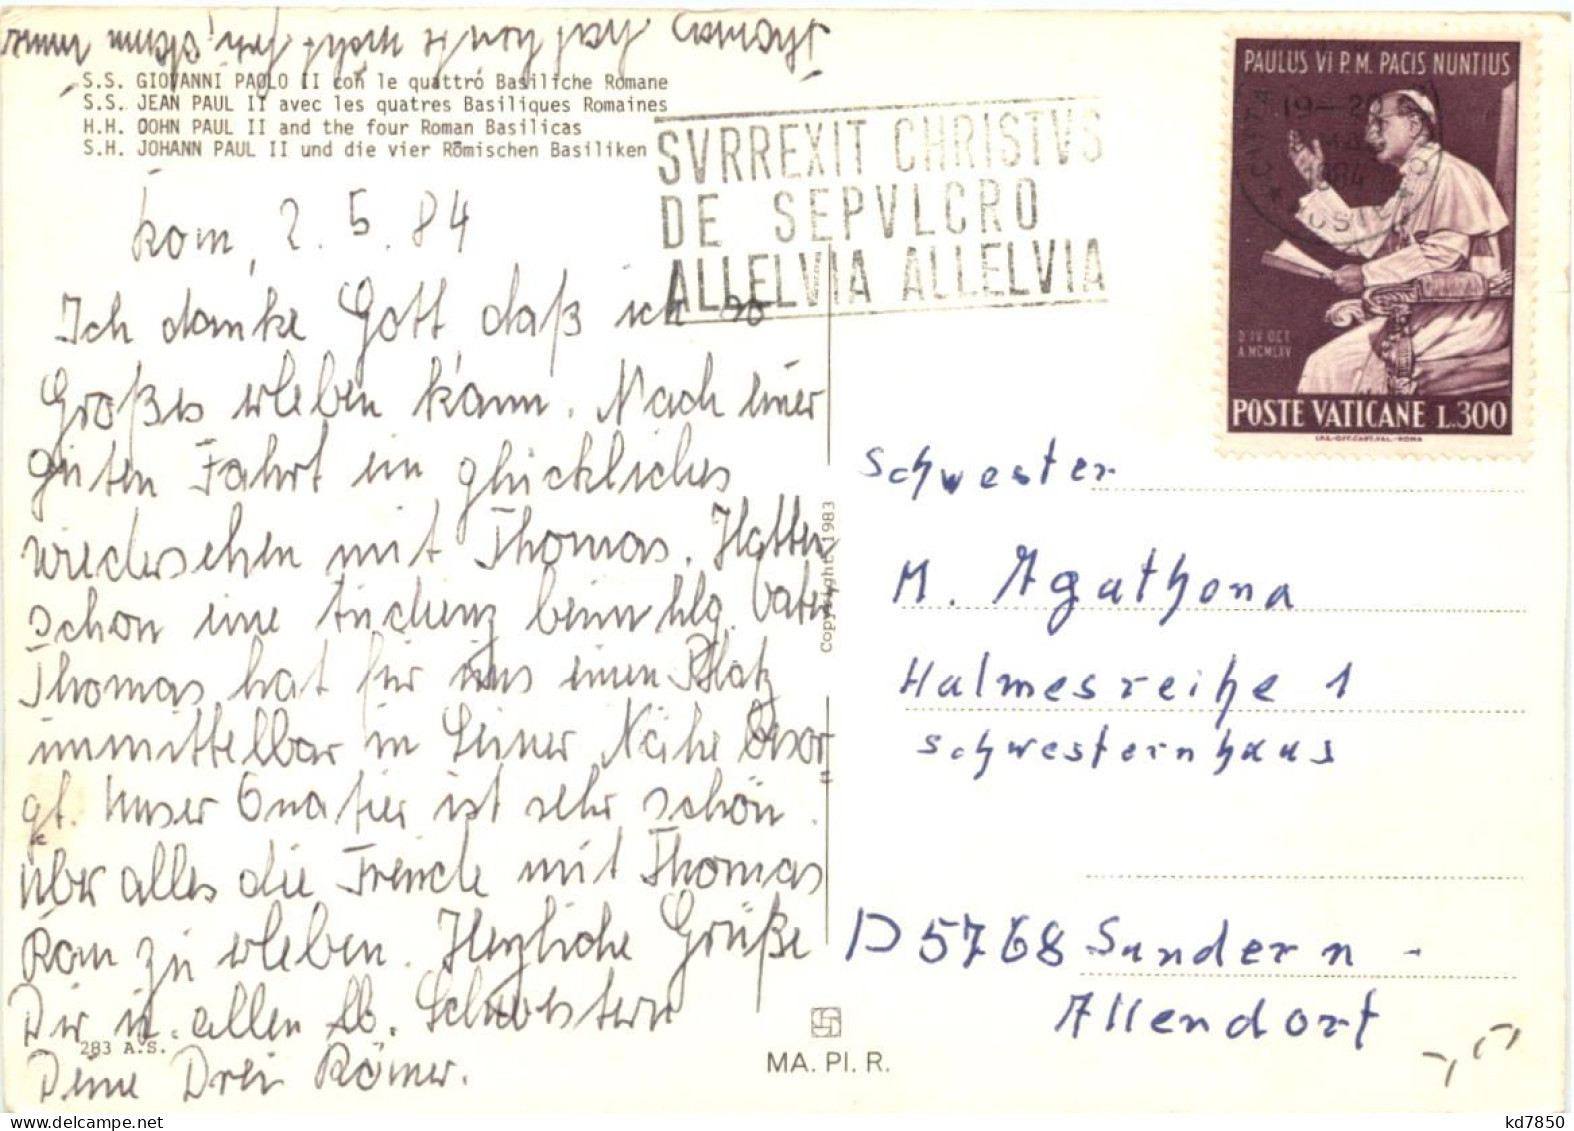 S.S. GIOVANNI PAOLO II con le quattro Basiliche Romane
S.S. JEAN PAUL II avec les quatres Basiliques Romaines
H.H. OOHN PAUL II and the four Roman Basilicas
S.H. JOHANN PAUL II und die vier Römischen Basiliken
SVRREXIT CHRISTVS
DE SEPVLCRO
ALLELVIA ALLELVIA
PAULUS VI P.M. PACIS NUNTIUS
19-20
1984
D IV OCT
A MCMLXV
POSTE VATICANE L.300
Rom, 2.5.84
Ich danke Gott daß ich so
Großes erleben kann. Nach einer
guten Fahrt ein glückliches
wiedersehen mit Thomas. Hatten
schon eine Audienz beim hlg. Vater
Thomas hat für uns einen Platz
unmittelbar in Seiner Nähe besor=
gt. Unser Quatier ist sehr schön.
über alles die Freude mit Thomas
Rom zu erleben. Herzliche Grüße
Dir u. allen lb. Schwestern
Deine Drei Römer.
283 A.S.
Copyright 1983
MA. PI. R.
Schwester
M. Agathona
Halmesreihe 1
Schwesternhaus
D 5768 Sundern -
Allendorf
kd7850